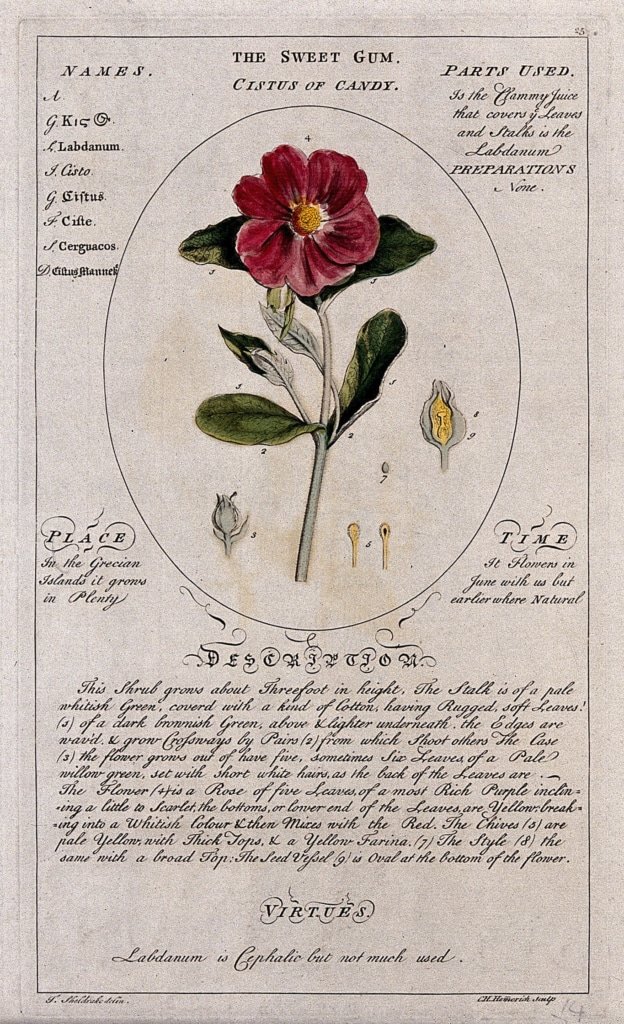 25
THE SWEET GUM.
CISTUS OF CANDY.
NAMES.
A
G. Κις
L. Labdanum.
I. Cisto.
G. Cistus.
F. Ciste.
S. Cerguacos.
D. Cistus Mannek
PARTS USED.
Is the Clammy Juice
that covers ye Leaves
and Stalks is the
Labdanum
PREPARATIONS
None.
4
5
3
3
5
2
2
8
9
7
3
5
PLACE
In the Grecian
Islands it grows
in Plenty
TIME
It Flowers in
June with us but
earlier where Natural
DESCRIPTION
This Shrub grows about Threefoot in height, The Stalk is of a pale
whitish Green, coverd with a kind of Cotton, having Rugged, soft Leaves
(2) of a dark brownish Green, above & lighter underneath, the Edges are
wav'd, & grow Crossways by Pairs (2) from which Shoot others The Case
(3) the flower grows out of have five, sometimes Six Leaves, of a Pale
willow green, set with short white hairs, as the back of the Leaves are.
The Flower (4) is a Rose of five Leaves, of a most Rich Purple inclin=
=ing a little to Scarlet, the bottoms, or lower end of the Leaves, are Yellow, break=
=ing into a Whitish Colour & then Mixes with the Red. The Chives (5) are
pale Yellow, with Thick Tops, & a Yellow Farina. (7) The Style (8) the
same with a broad Top: The Seed Vessel (9) is Oval at the bottom of the flower.
VIRTUES.
Labdanum is Cephalic but not much used.
T. Sheldrake delin.
C.H. Hemerich sculp
14